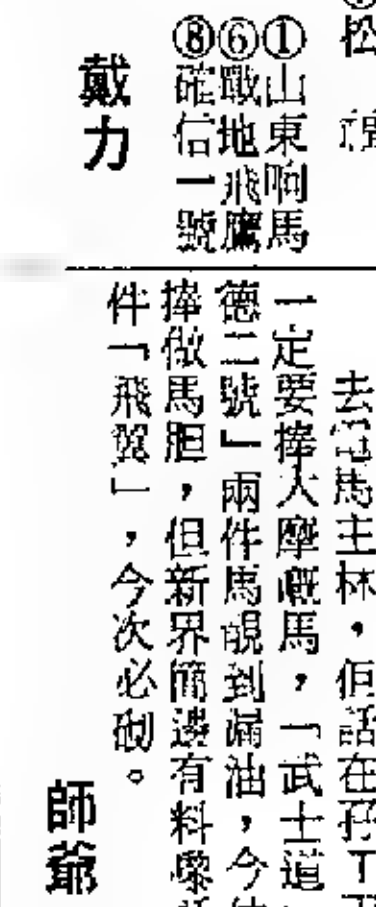 松
①山東响馬
⑥戰地飛鷹
⑧確信一號
戴力
去冠馬主林，佢話在孖丁
一定要捧大摩嘅馬，「武士道
德二號」兩件馬靚到漏油，今
捧做馬胆，但新界簡邊有料嚟
件「飛翼」，今次必砌。
師爺